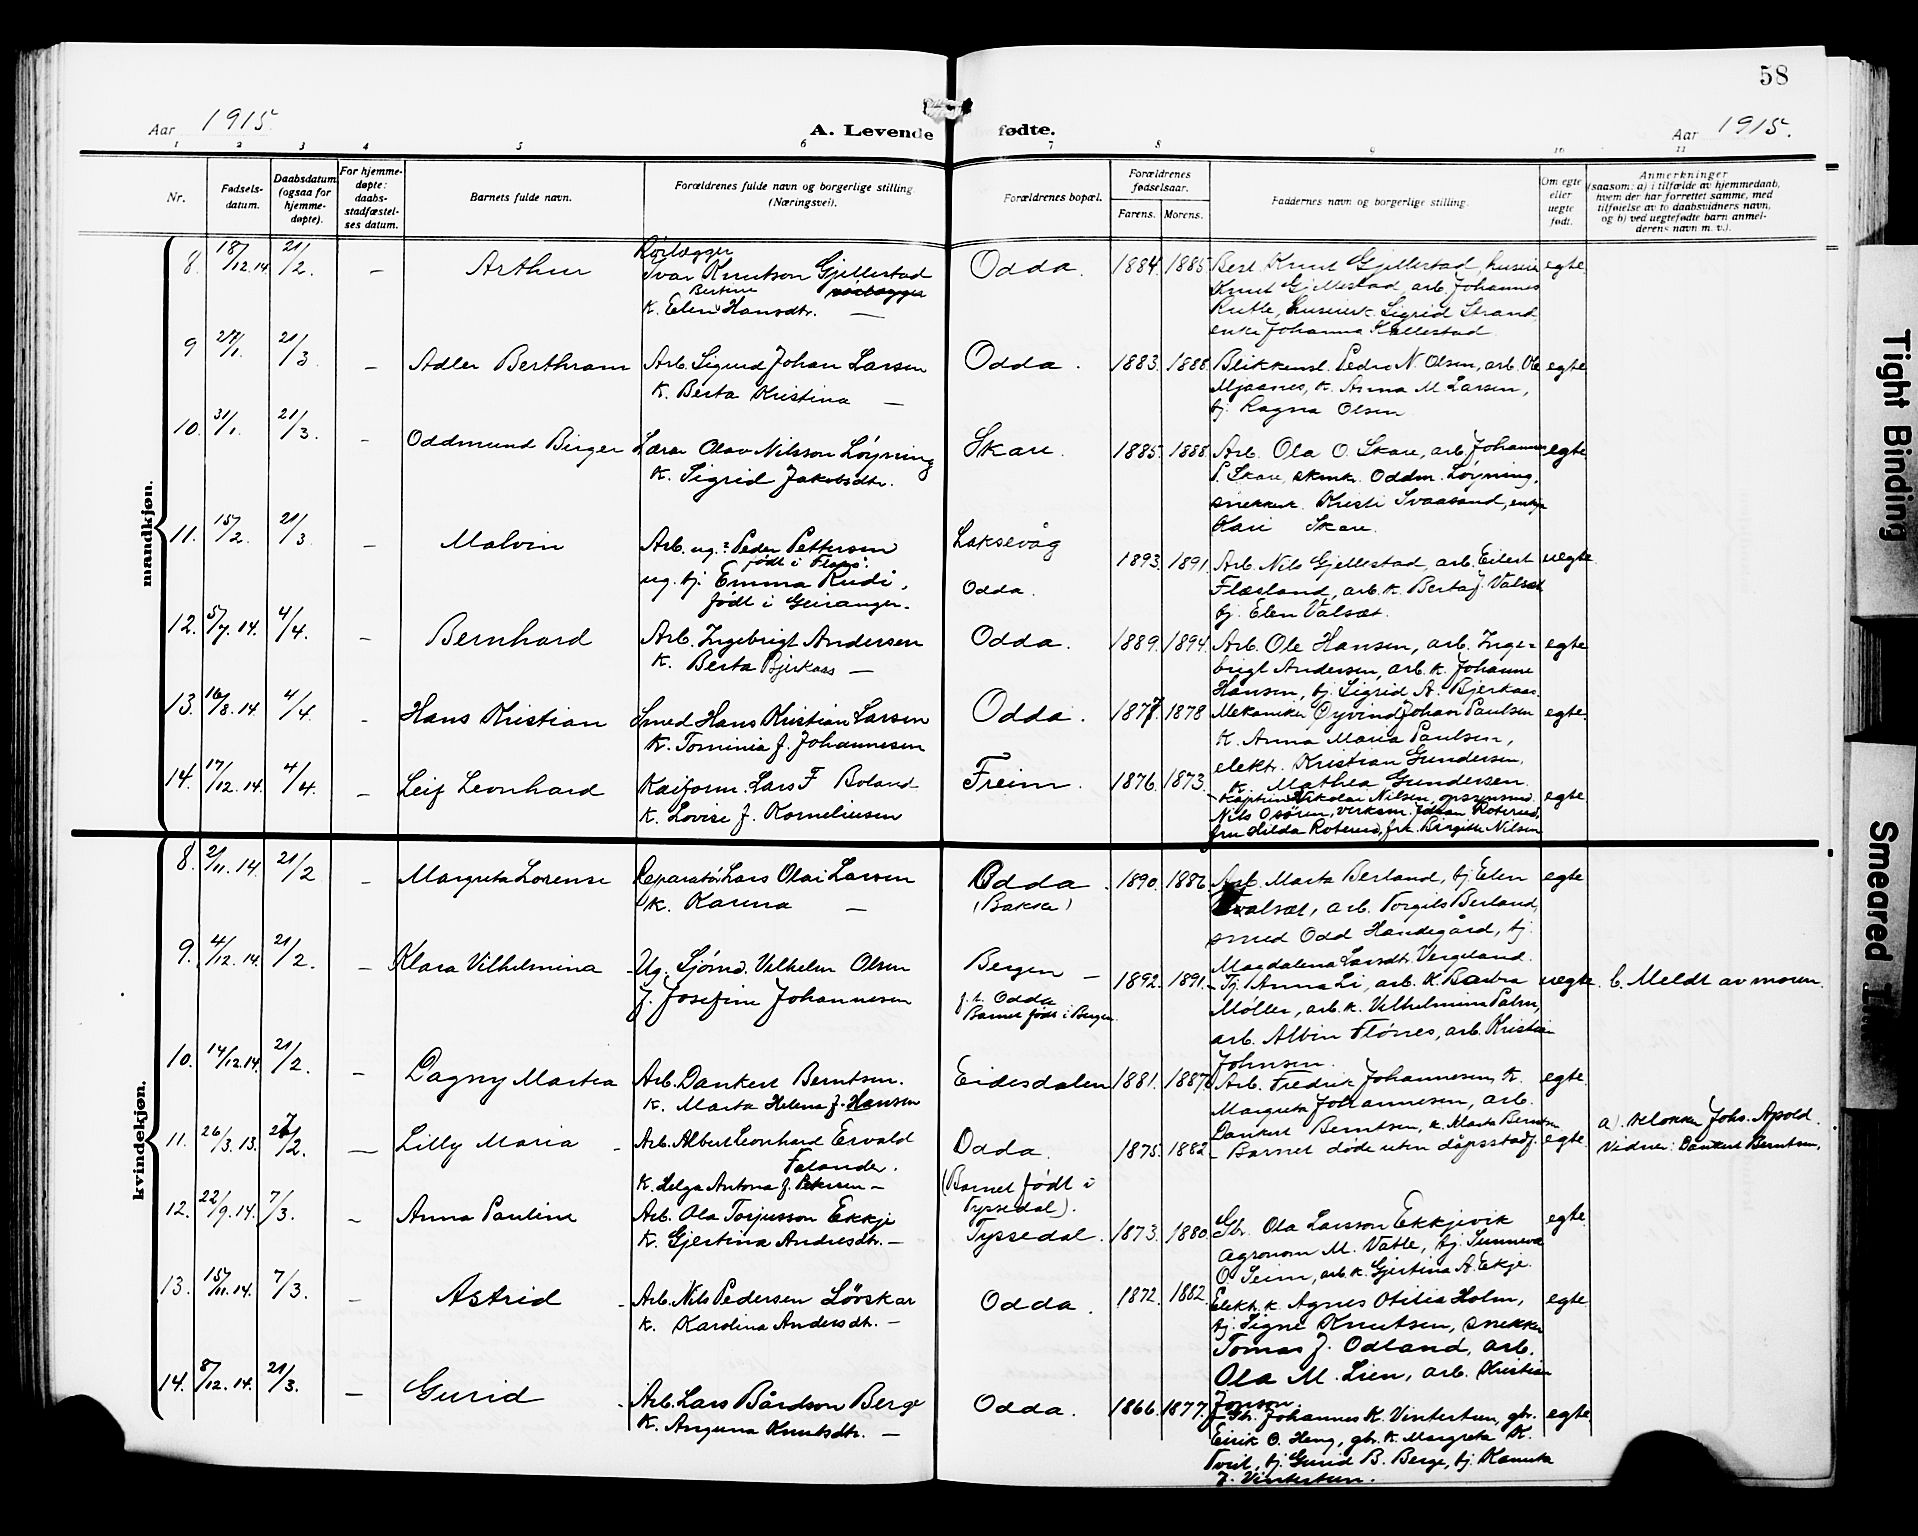 58
Aar 1915.
A. Levende fødte.
Aar 1915.
1 2 3 4 5 6 7 8 9 10 11
Nr.
Fødsels-
datum.
Daabsdatum
(ogsaa for
hjemme-
døpte).
For hjemme-
døpte:
daabs-
stadfæstel-
ses datum.
Barnets fulde navn.
Forældrenes fulde navn og borgerlige stilling
(Næringsvei).
Forældrenes bopæl.
Forældrenes
fødselsaar.
Farens. Morens.
Faddernes navn og borgerlige stilling.
Om egte
eller
uegte
født.
Anmerkninger
(saasom: a) i tilfælde av hjemmedaab,
hvem der har forrettet samme, med
tilføielse av to daabsvidners navn,
og b) ved uegtefødte barn anmel-
derens navn m. v.).
mandkjøn.
8. 18/12.14 21/2. – Arthur
Rørlægger
Ivar Knutson Gjellestad
Bertine rørlægger
K. Elen Hansdtr. —
Odda. 1884. 1885
Besl. Knut Gjellestad, huseier
Knut Gjellestad, arb. Johannes
Rutle, huseierk. Sigrid Strand
enke Johanna Kallestad
egte
9 27/1. 21/3 – Adler Berthram
Arb. Sigurd Johan Larsen
K. Berta Kristina —
Odda. 1883. 1888.
Blikkensl. Pedro N. Olsen, arb. Ole
Mjaanes, k. Anna M Larsen,
tj. Ragna Olsen
egte
10. 31/1. 21/3. – Oddmund Birger
Lærar Olav Nilsson Løyning
K. Sigrid Jakobsdtr.
Skare. 1885. 1888.
Arb. Ola O. Skare, arb. Johannes
P. Skare, Oddm. Løyning,
snekkerk. Kristi Svaasand, enkje
Kari Skare.
egte
11. 15/2. 21/3. – Malvin
Arb. ug. Peder Pettersen
født i
ug. tj. Emma Rudi,
født i Geiranger.
Laksevåg
Odda. 1893. 1891.
Arb. Nils Gjellestad, arb. Eilert
Flæsland, arb. k. Berta J. Valsæt
tj. Elen Valsæt.
uegte
12. 5/7. 14. 4/4. – Bernhard
Arb. Ingebrigt Andersen
K. Berta Bjerkaas —
Odda. 1889. 1894.
Arb. Ole Hansen, arb. Inge-
brigt Andersen, arb. k. Johanne
Hansen, tj. Sigrid A. Bjerkaas.
egte
13. 16/8. 14. 4/4. – Hans Kristian
Smed Hans Kristian Larsen
K. Tominia f. Johannesen
Odda. 1877. 1878
Mekaniker Øyvind Johan Paulsen
K. Anna Maria Paulsen,
elektr. Kristian Gundersen,
K. Mathea Gundersen
egte.
14. 17/12. 14. 4/4. – Leif Leonhard
Kaiform. Lars F Boland
K. Lovise f. Korneliussen
Freim. 1876. 1873.
Kaptein Nikolai Nilsen, opsynsmd.
Nils Osøren, verksm. Johan Roterud,
fru Hilda Roterud, frk. Birgitte Nilsen
egte
kvindekjøn.
8. 2/11. 14. 21/2 – Margreta Lorense
Reparatør Lars Olai Larsen
K. Karina —
Odda.
(Bakke)
1890. 1886
Arb. Marta Berland, tj. Elen
Tvalsæt, arb. Torgils Berland,
smed Odd Handegård, tj.
Magdalena Larsdt. Vergeland.
egte
9. 4/12. 14. 21/2. – Klara Vilhelmina
Ug. Sjømd. Vilhelm Olsen
f. Josefine Johannesen
Bergen –
f.t. Odda
Barnet født i Bergen
1892. 1891.
Tj. Anna Li, arb. k. Barbra
Møller, arb. k. Vilhelmina Palm,
arb. Albin Flönes, arb. Kristian
Johnsen.
uegte. b. Meldt av moren.
10. 14/12.14. 21/2. – Dagny Martea
Arb. Dankert Berntsen.
K. Marta Helena f. Hansen
Eidesdalen 1881. 1887
Arb. Fredrik Johannesen, K.
Margreta Johannesen, arb.
Dankert Berntsen, k. Marta Berntsen
egte.
11. 26/3. 13. 27/2. – Lilly Maria
Arb. Albert Leonhard Ervald
Falander.
K. Helga Antona f. Petersen –
Odda.
(Barnet født i
Tyssedal).
1875. 1882
– Barnet døde uten dåpsstadf.
egte.
a). Johs. Apold.
Vidner: Dankert Berntsen,
12. 22/9. 14. 7/3. – Anna Pauline
Arb. Ola Torjusson Ekkje
K. Gjertina Andresdtr. –
Tyssedal. 1873. 1880.
Gbr. Ola Larsson Ekkjevik
agronom M. Vatle, tj. Sunneva
O. Seim, arb. k. Gjertina A. Ekje.
egte
13. 15/11. 14. 7/3. – Astrid
Arb. Nils Pedersen Løvskar
K. Karolina Andersdtr. –
Odda. 1872. 1882.
Elektr. k. Agnes Otilia Holm,
tj. Signe Knutsen, snekker
Tomas J. Odland, arb.
Ola M. Lien, arb. Kristian
Jonson.
egte
14. 8/12. 14. 21/3. – Gurid
Arb. Lars Bårdson Berge
K. Anguna Knutsdtr. —
Odda. 1866. 1877.
Gbr. Johannes K. Vintertun, gbr.
Eirik O. Heng, gbr. k. Margreta K.
Tveit, tj. Gurid B. Berge, tj.
J. Vintertun.
egte
Tight Binding
Smeared